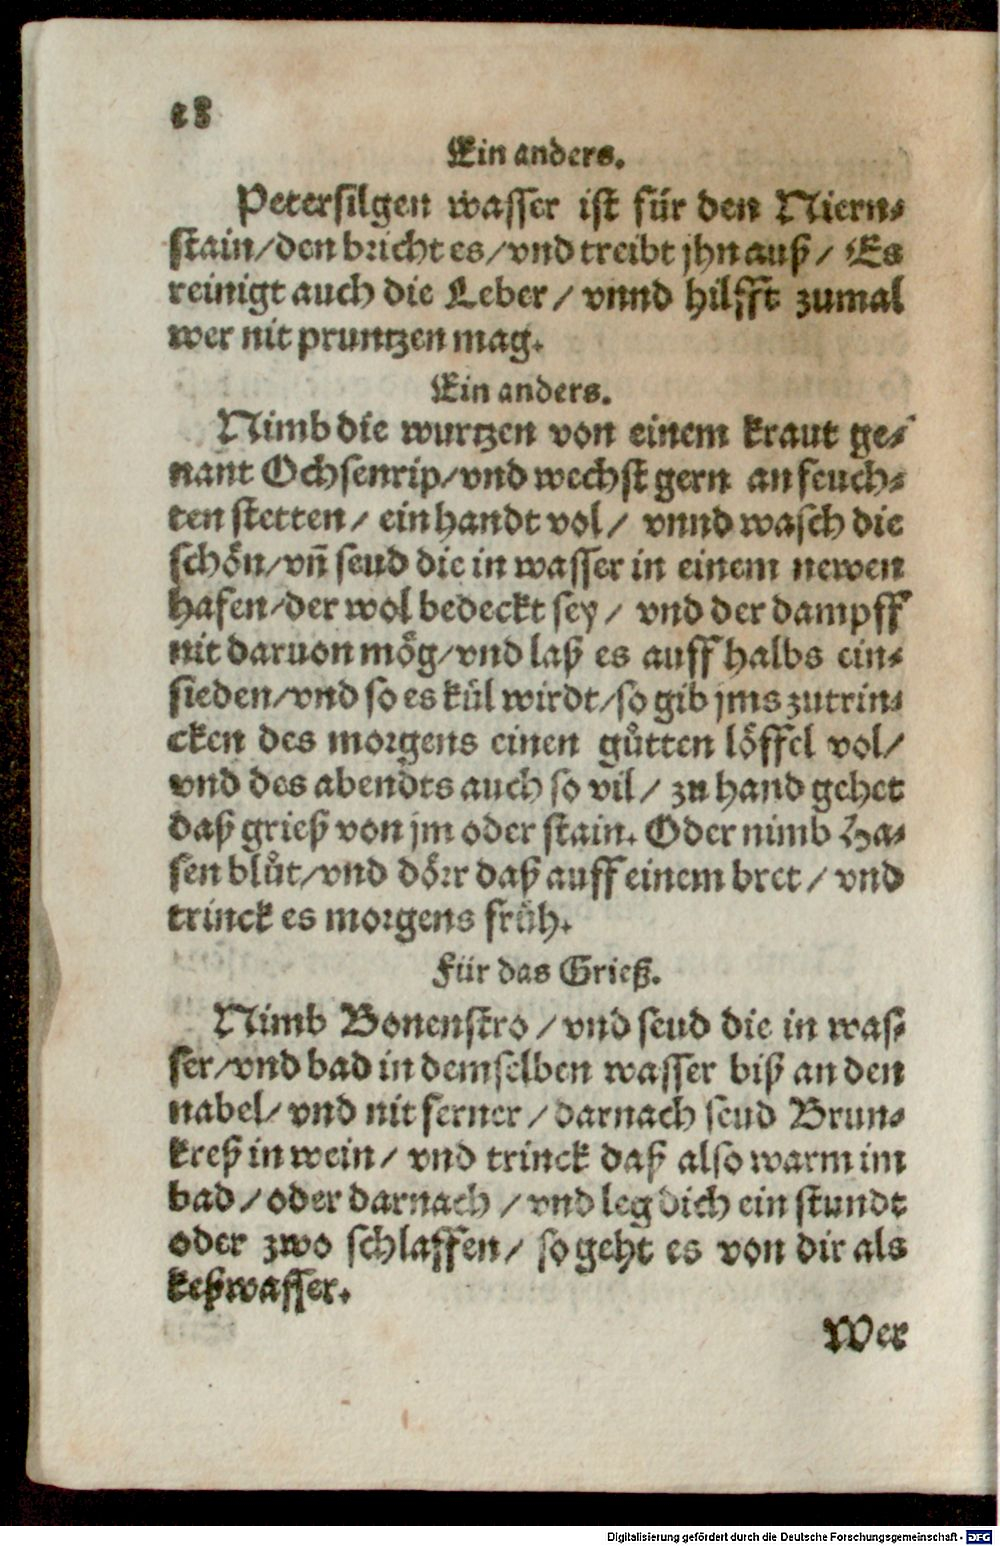 18
Ein anders.
Petersilgen wasser ist für den Niern⸗
stain/den bricht es/vnd treibt jhn auß/ Es
reinigt auch die Leber/ vnnd hilfft zumal
wer nit pruntzen mag.
Ein anders.
Nimb die wurtzen von einem kraut ge⸗
nant Ochsenrip/vnd wechst gern an feuch⸗
ten stetten/ ein handt vol/ vnnd wasch die
schön/vn̄ seud die in wasser in einem newen
hafen/der wol bedeckt sey/ vnd der dampff
nit daruon mög/vnd laß es auff halbs ein⸗
sieden/vnd so es kül wirdt/so gib jms zutrin⸗
cken des morgens einen gůtten löffel vol/
vnd des abendts auch so vil/ zu hand gehet
daß grieß von jm oder stain. Oder nimb Ha⸗
sen blůt/vnd dörr daß auff einem bret/ vnd
trinck es morgens früh.
Für das Grieß.
Nimb Bonenstro/vnd seud die in was⸗
ser/vnd bad in demselben wasser biß an den
nabel/ vnd nit ferner/darnach seud Brun⸗
kreß in wein/ vnd trinck daß also warm im
bad/oder darnach/vnd leg dich ein stundt
oder zwo schlaffen/ so geht es von dir als
keßwasser.
Wer
Digitalisierung gefördert durch die Deutsche Forschungsgemeinschaft - DFG